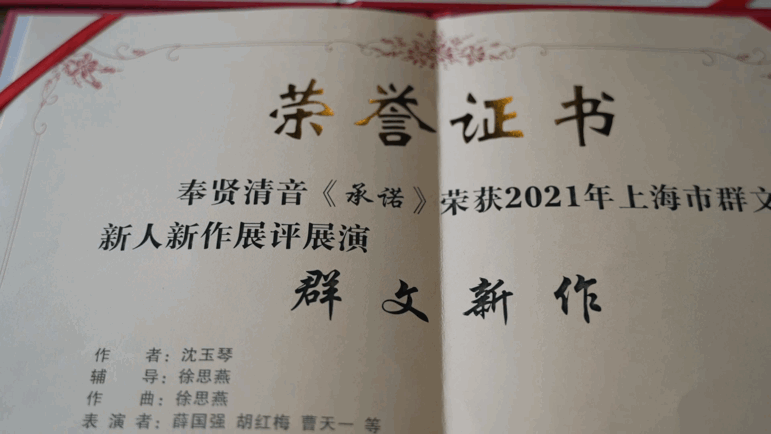 荣誉证书
奉贤清音《承诺》荣获2021年上海市群文
新人新作展评展演
群文新作
作 者：沈玉琴
辅 导：徐思燕
作 曲：徐思燕
表 演 者：薛国强 胡红梅 曹天一 等